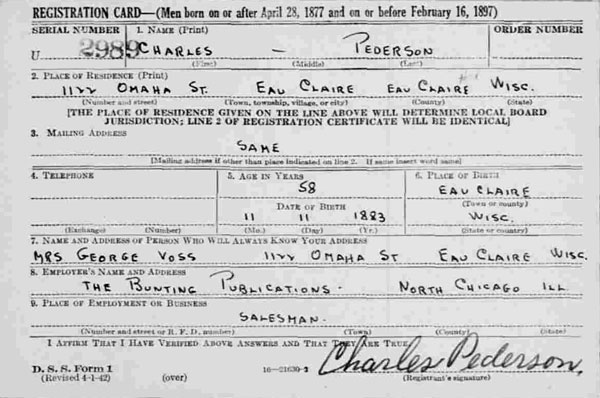 REGISTRATION CARD—(Men born on or after April 28, 1877 and on or before February 16, 1897)
SERIAL NUMBER 1. NAME (Print) ORDER NUMBER
U 2989 CHARLES — PEDERSON
(First) (Middle) (Last)
2. PLACE OF RESIDENCE (Print)
1122 OMAHA ST. EAU CLAIRE EAU CLAIRE WISC.
(Number and street) (Town, township, village, or city) (County) (State)
[THE PLACE OF RESIDENCE GIVEN ON THE LINE ABOVE WILL DETERMINE LOCAL BOARD
JURISDICTION; LINE 2 OF REGISTRATION CERTIFICATE WILL BE IDENTICAL]
3. MAILING ADDRESS
SAME
[Mailing address if other than place indicated on line 2. If same insert word same]
4. TELEPHONE 5. AGE IN YEARS 6. PLACE OF BIRTH
58 EAU CLAIRE
DATE OF BIRTH (Town or county)
11 11 1883 WISC.
(Exchange) (Number) (Mo.) (Day) (Yr.) (State or country)
7. NAME AND ADDRESS OF PERSON WHO WILL ALWAYS KNOW YOUR ADDRESS
MRS GEORGE VOSS 1122 OMAHA ST EAU CLAIRE WISC.
8. EMPLOYER'S NAME AND ADDRESS
THE BUNTING PUBLICATIONS. NORTH CHICAGO ILL.
9. PLACE OF EMPLOYMENT OR BUSINESS
SALESMAN.
(Number and street or R. F. D. number) (Town) (County) (State)
I AFFIRM THAT I HAVE VERIFIED ABOVE ANSWERS AND THAT THEY ARE TRUE.
Charles Pederson.
D. S. S. Form 1
(Revised 4-1-42) (over) 16—21630-2 (Registrant's signature)